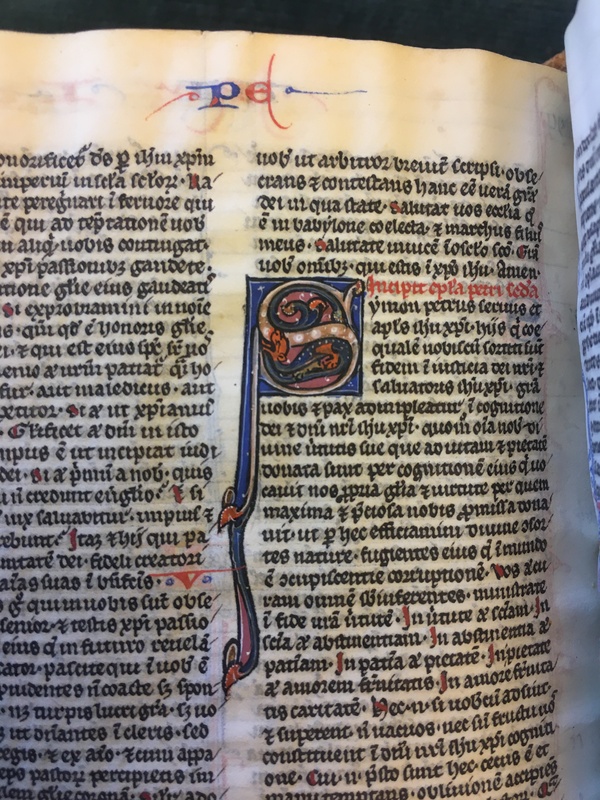 pe
onorificet᷑ ds p̲ ihm xpm
imperiu in scl̃a scl̃oꝝ · Ka
te peregrinari i feruore qui
ē qui ad tēptationē uob
m aliq̇ uobis contingat ·
xp̃i passionibꝫ gaudete ·
tione glie eius gaudeati
Si exprobamini in noīe
· qui · qd ē honoris glie ·
ur · aut maledicus · aut
xetitor · Si aɫ ut xp̃ianus
· Glificet aɫ dm in isto
mpus ē ut incipiat iudi
dei · Si aɫ p̄mū a nob · quis
n̄ credunt eu̅glio · Et si
uix saluabitur · impius ⁊
rebunt · Itaꝫ ⁊ hij qui pa
untatē dei · fideli creatori
aias suas i bn̄fcis ·
ġ qui in uobis sut obse
senior · ⁊ testis xp̃i passio
eius q̇ in futuro reuelā
cator · pascite qui i uob ē
puidentes n̄ coacte sꝫ spon
· nꝫ turpis lucri gr̄a · sꝫ uo
ut dn̄antes i cleris · sed
regis · ⁊ ex aīo · ⁊ cum appa
ceps pastorꝝ percipietis in
uob ut arbitror breuit̄ scripsi · obse
crans ⁊ contestans hanc eē uerā gr̄am
dei in qua state · Salutat uos ecclia q̇
ē in babylone coelecta · ⁊ marchus filiꝰ
meus · Salutate inuicē i osclo sc̄o · Gr̄a
uob om̄ibꝫ · qui estis i xp̄o ihu · Amen ·
Incipit epl̄a petri sc̄da
Symon petrus seruus et
apl̄s ihu xp̃i · hijs q̇ coe
qualē nobiscū sortiti sut
fidem i iusticia dei nr̄i ⁊
saluatoris ihu xp̃i · gr̄a
uobis ⁊ pax adimpleatur · i cognitione
dei ⁊ dn̄i nr̄i ihu xp̃i · quom̊ oīa nob di
uine ūtutis sue que ad uitam ⁊ pietatē
donata sunt per cognitionē eius q̇ uo
cauit nos ꝓpria gl̄ia ⁊ uirtute per quem
maxima ⁊ p̄ciosa nobis ꝓmissa dona
uit · ut p̲ hec efficiamini diuine osor
tes nature · fugientes eius q̇ i mundo
ē ɔcupiscentie corruptionē · Vos aɫ cu
ram omnē sbinferentes · ministrate
i fide ur̄a ūtutē · In ūtute aɫ scīam · In
scīa aɫ abstinentiam · In abstinentia aɫ
patīam · In patīa aɫ pietatē · In pietate
aɫ amorem fr̄nitatis · In amore fr̄nita
tis caritatē · Hec · n · si uobcū adsint ·
⁊ superent n̄ uacuos · nec sn̄ fructu uos
constituent i dn̄i nr̄i ihu xp̃i cogniti
one · Cui · n · p̄sto sunt hec · cecus ē et
manu temptans · obliuionē accipiēs